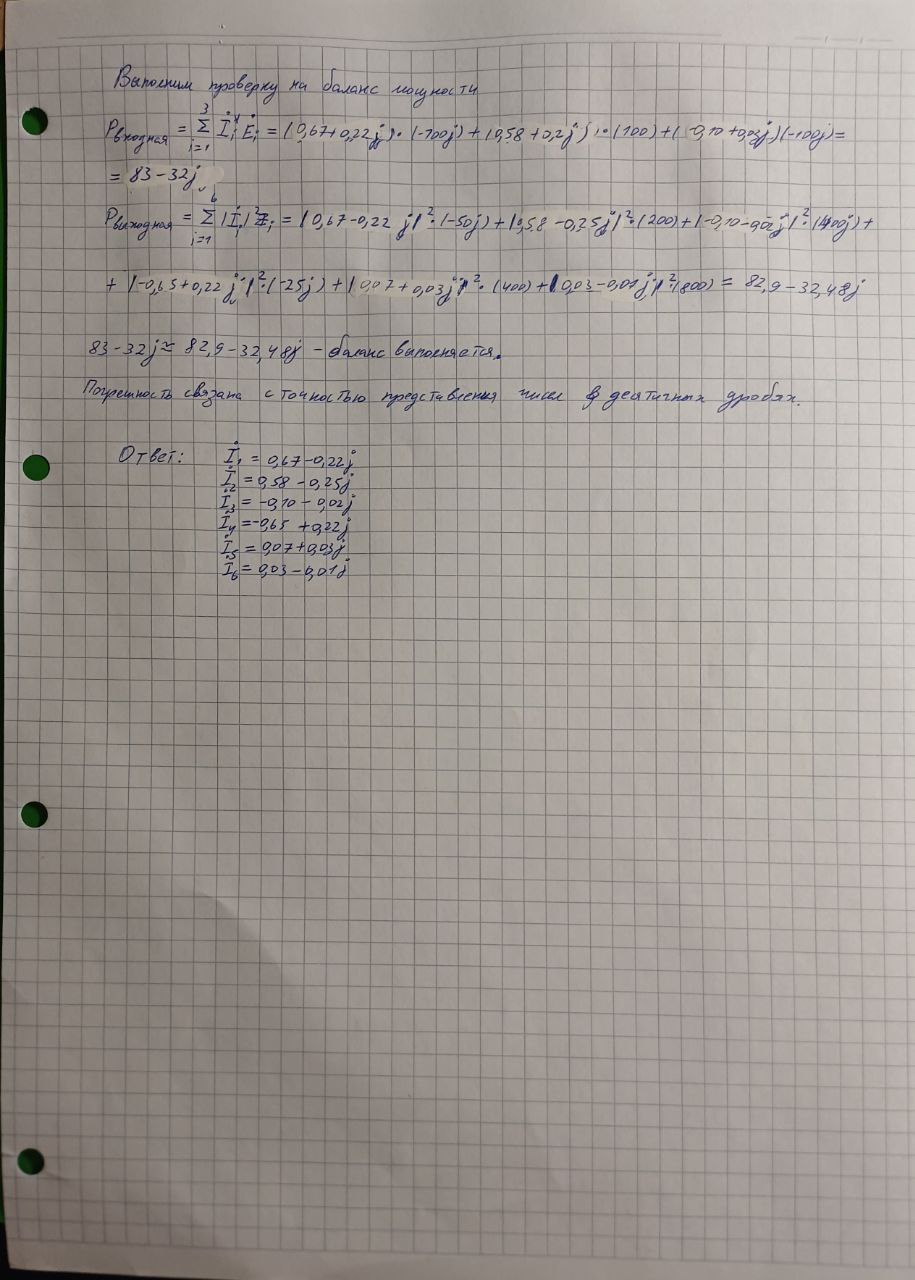 Выполним проверку на баланс мощности
Pвходная = Σ³ᵢ₌₁ İᵢ* Ėᵢ = (0,67+0,22j)·(-100j) + (0,58+0,2j)·(100) + (-0,10+0,03j)(-100j) =
= 83-32j
Pвыходная = Σ⁶ᵢ₌₁ |İᵢ|² Zᵢ = |0,67-0,22j|²·(-50j) + |0,58-0,25j|²·(200) + |-0,10-0,02j|²·(400j) +
+ |-0,65+0,22j|²·(-25j) + |0,07+0,03j|²·(400) + |0,03-0,01j|²·(800) = 82,9-32,48j
83-32j ≈ 82,9-32,48j - баланс выполняется.
Погрешность связана с точностью представления чисел в десятичных дробях.
Ответ: İ₁ = 0,67-0,22j
İ₂ = 0,58-0,25j
İ₃ = -0,10-0,02j
İ₄ = -0,65+0,22j
İ₅ = 0,07+0,03j
İ₆ = 0,03-0,01j